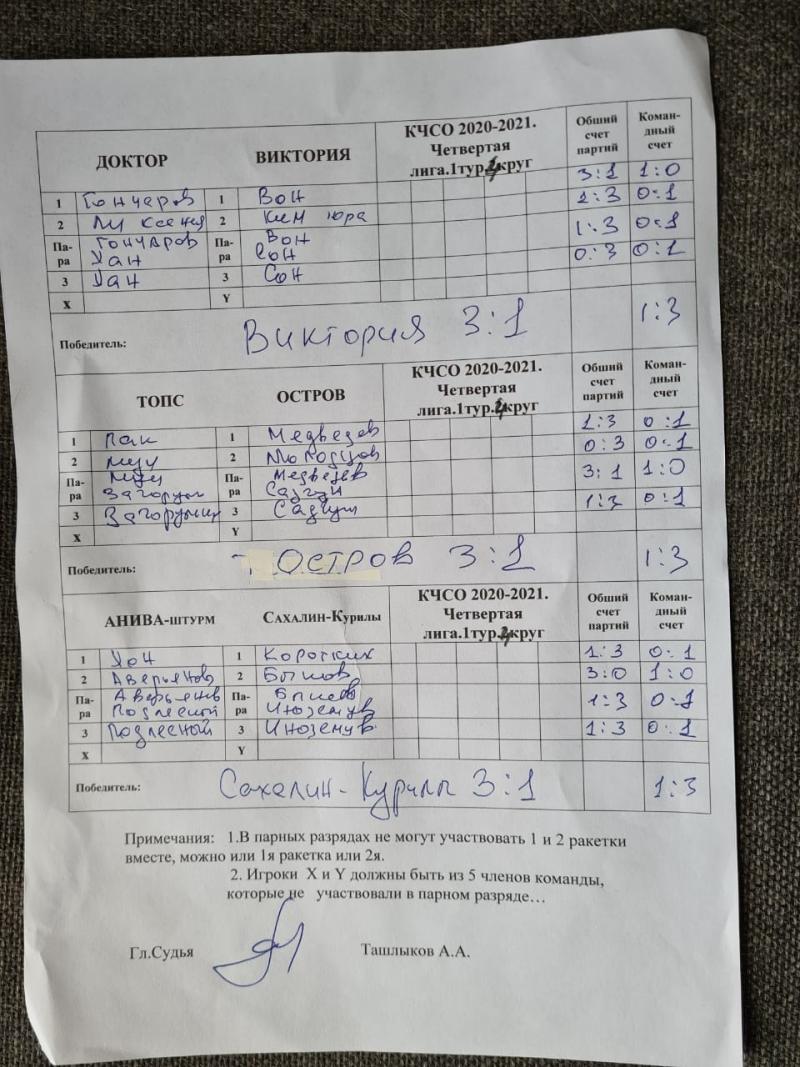 ДОКТОР ВИКТОРИЯ КЧСО 2020-2021. Четвертая лига.1тур.2круг Обший счет партий Коман-дный счет
1 Гончаров 1 Вон 3:1 1:0
2 Ли Ксения 2 Ким Юра 1:3 0:1
Па-ра Гончаров Хан Па-ра Вон Сон 1:3 0:1
3 Хан 3 Сон 0:3 0:1
X Y
Победитель: Виктория 3:1 1:3
ТОПС ОСТРОВ КЧСО 2020-2021. Четвертая лига.1тур.2круг Обший счет партий Коман-дный счет
1 Пак 1 Медведев 1:3 0:1
2 2 Молодцов 0:3 0:1
Па-ра Па-ра Медведев 3:1 1:0
3 3 1:3 0:1
X Y
Победитель: ОСТРОВ 3:1 1:3
АНИВА-ШТУРМ САХАЛИН-КУРИЛЫ КЧСО 2020-2021. Четвертая лига.1тур.2круг Обший счет партий Коман-дный счет
1 1 Коротких 1:3 0:1
2 Аверьянов 2 Быков 3:0 1:0
Па-ра Аверьянов Подлесный Па-ра Иноземцев 1:3 0:1
3 Подлесный 3 Иноземцев 1:3 0:1
X Y
Победитель: Сахалин-Курилы 3:1 1:3
Примечания: 1.В парных разрядах не могут участвовать 1 и 2 ракетки
вместе, можно или 1я ракетка или 2я.
2. Игроки X и Y должны быть из 5 членов команды,
которые не участвовали в парном разряде…
Гл.Судья Ташлыков А.А.